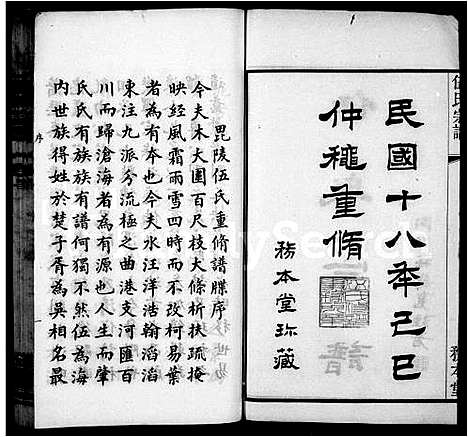 伍氏宗譜
務本堂
民國十八年己巳
仲穐重脩
務本堂珎藏
毘陵伍氏重脩譜牒序
今夫木大圍百尺枝大條析扶疏掩
映經風霜雨雪四時而不改柯易葉
者為有本也今夫水汪洋浩翰滔滔
東注九派分流極之曲港支河匯百
川而歸滄海者為有源也人生而肇
氏氏有族族有譜何獨不然伍為海
内世族得姓於楚子胥為吳相名最
序
一